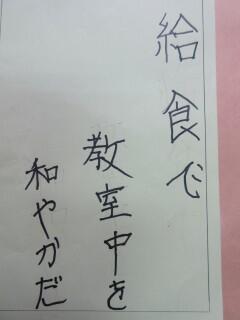 給食で
教室中を
和やかだ